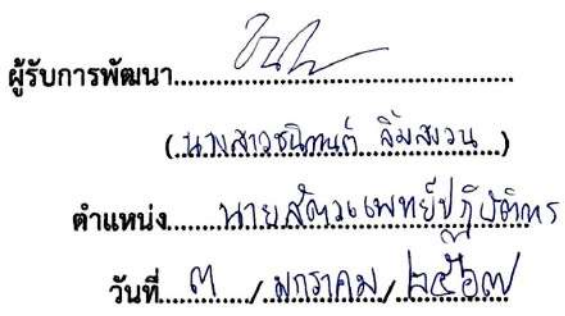 ผู้รับการพัฒนา
(นางสาวชนิกานต์ ลิ้มสงวน)
ตำแหน่ง นายสัตวแพทย์ปฏิบัติการ
วันที่ ๓ / มกราคม / ๒๕๖๗